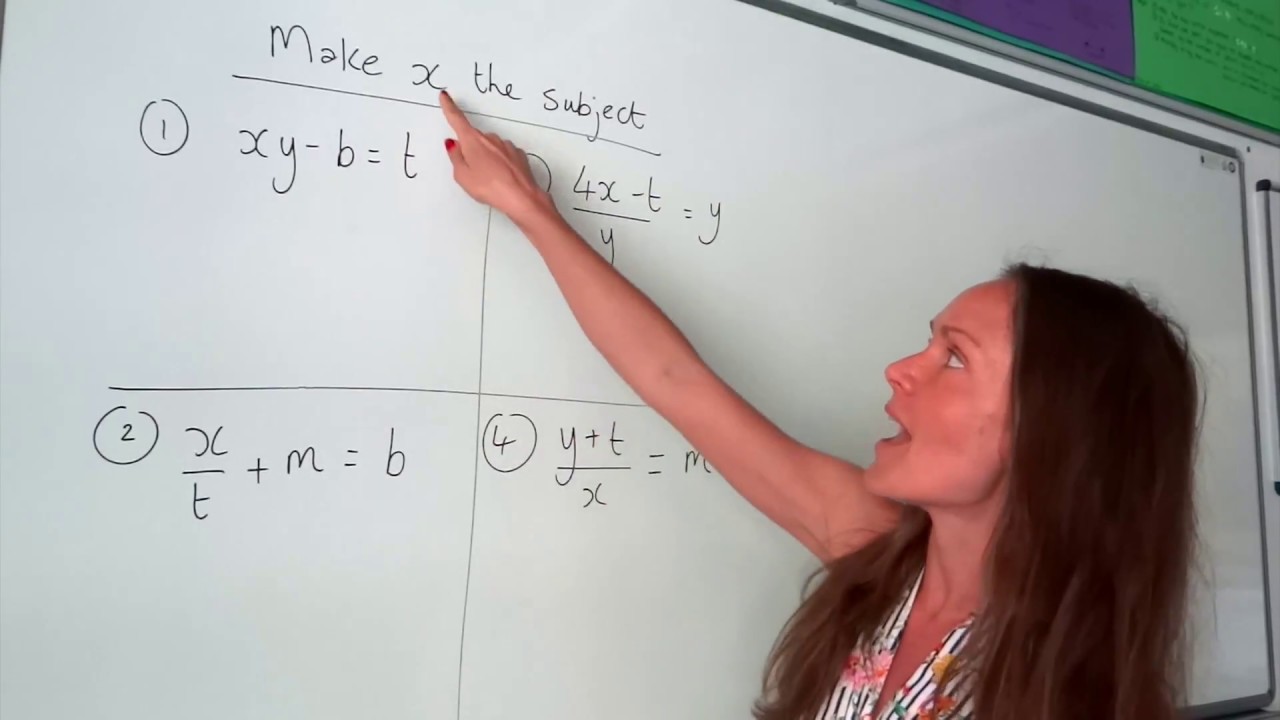 Make x the subject
① xy - b = t
4x - t / y = y
② x / t + m = b
④ y + t / x = m